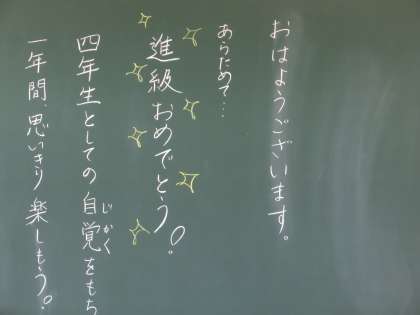 おはようございます。
あらためて…
進級おめでとう。
四年生としての自覚をもち
じかく
一年間、思いきり楽しもう。